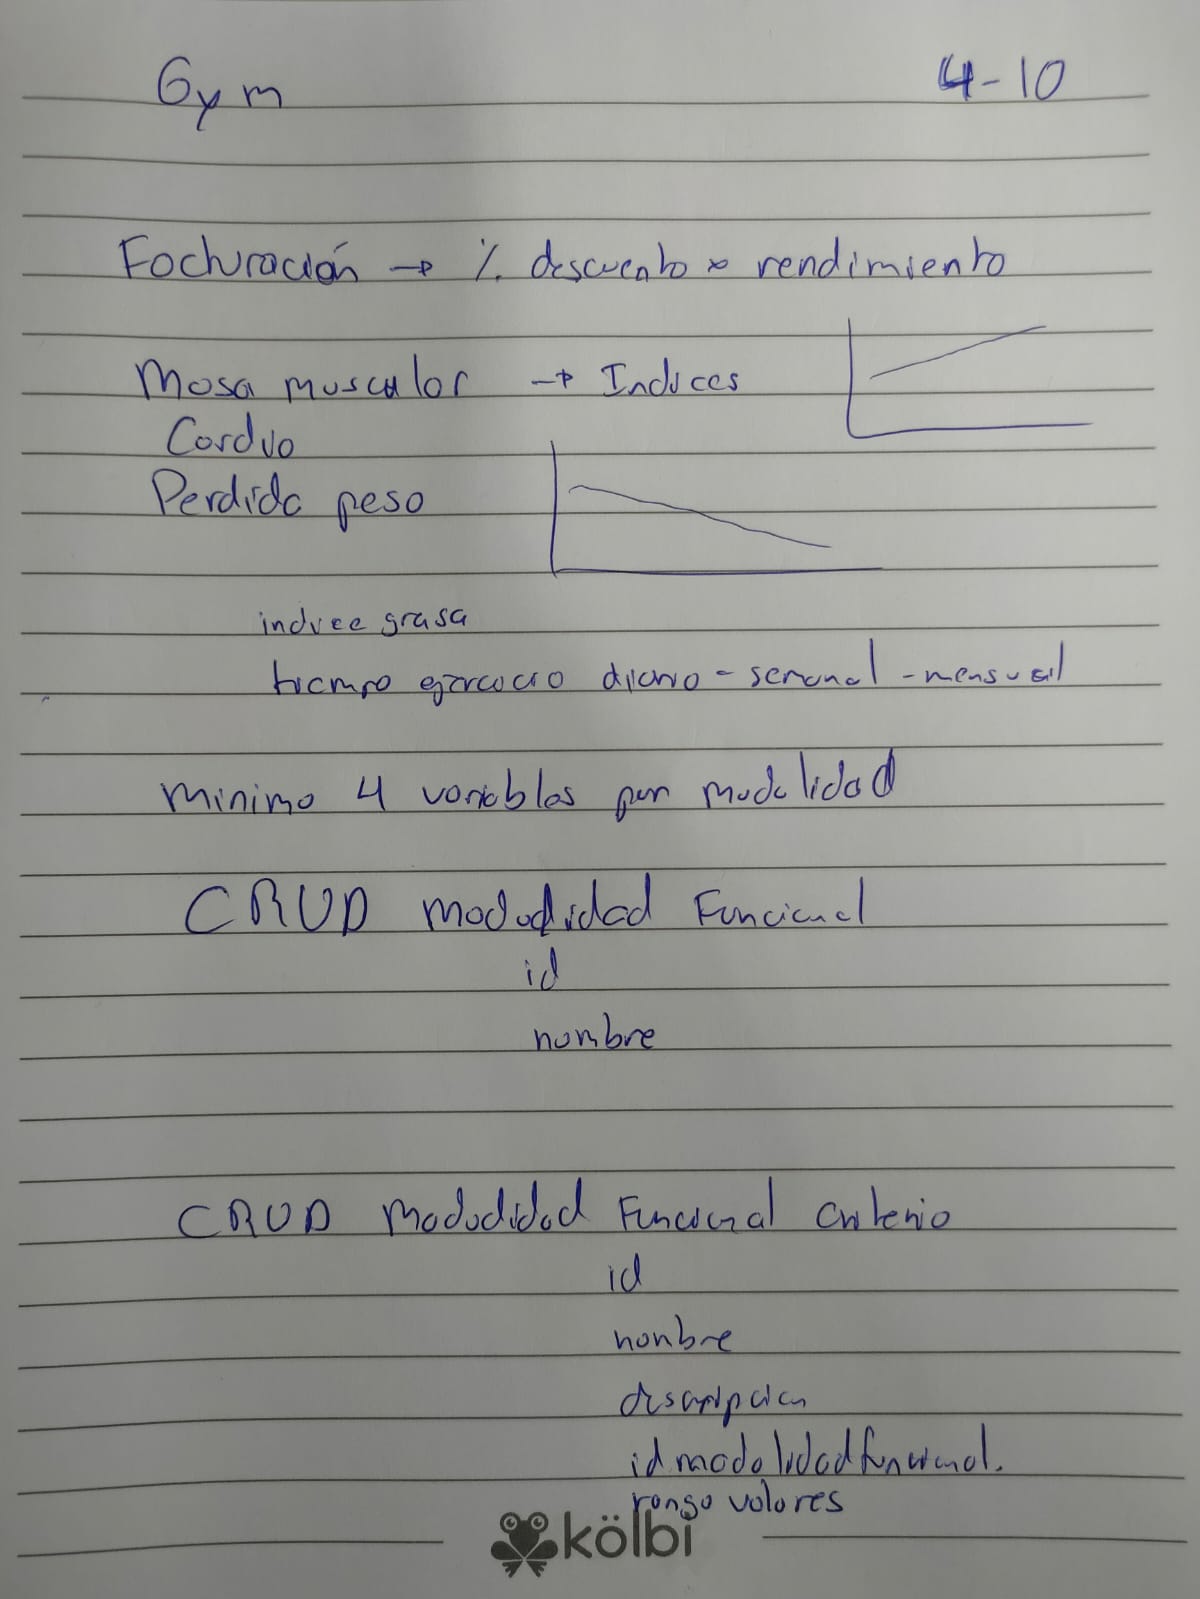 Gym 4-10
Facturación → % descuento x rendimiento
Masa muscular → Indices
Cardio
Perdida peso
indice grasa
tiempo ejercicio diario - semanal - mensual
minimo 4 variables por modalidad
CRUD modalidad Funcional
id
nombre
CRUD modalidad Funcional Criterio
id
nombre
descripcion
id modalidad funcional.
rango valores
kölbi